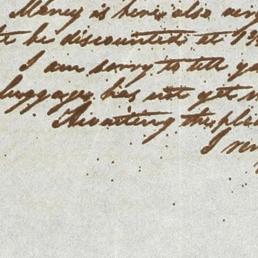 Money is here also very
be discounted at 1
I am sorry to tell yo
luggage has not yet
Awaiting the ple
I re